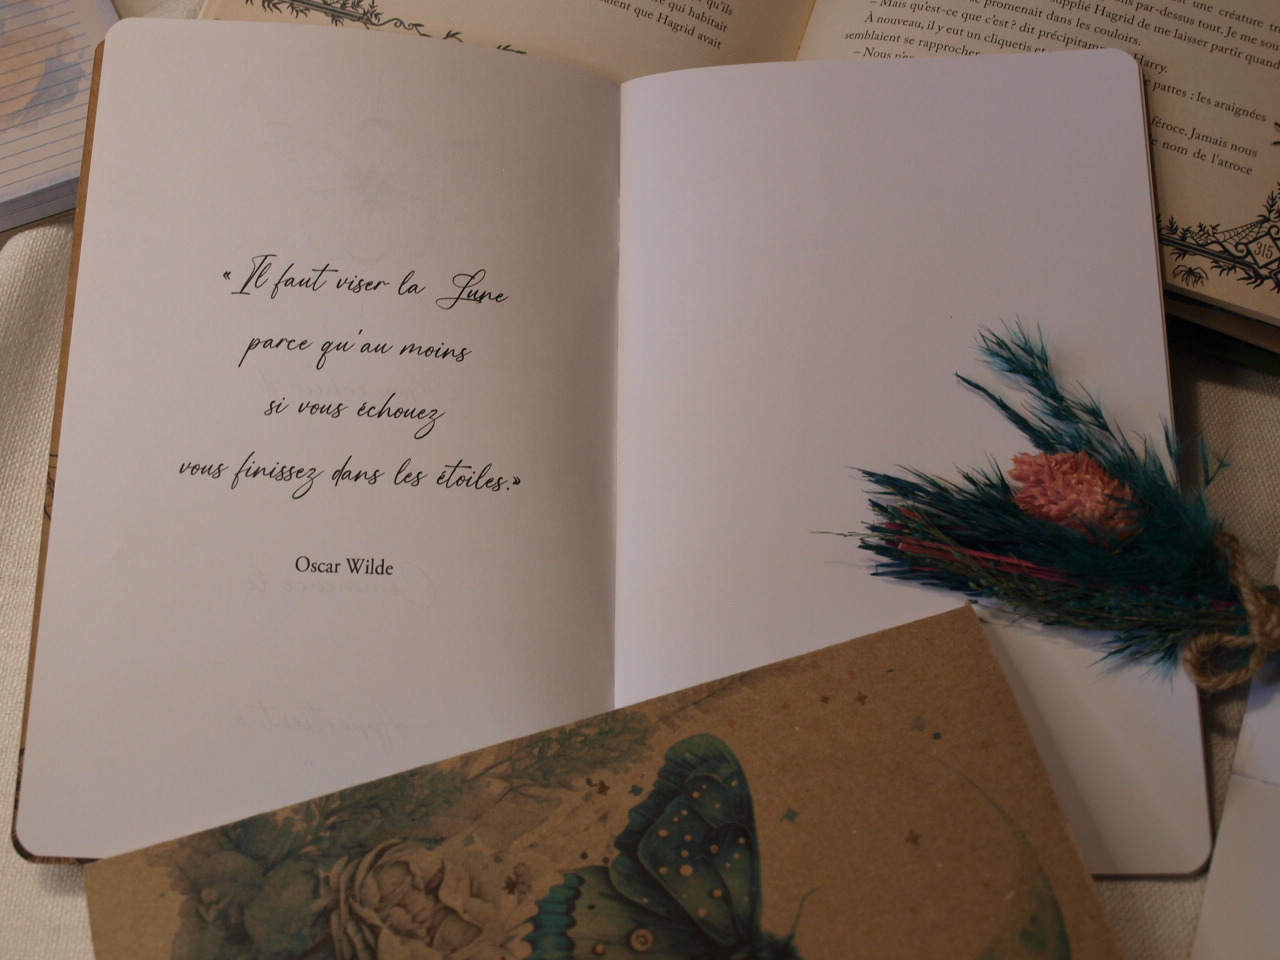 « Il faut viser la Lune
parce qu'au moins
si vous échouez
vous finissez dans les étoiles.»
Oscar Wilde
qu'ils
qui habitait
aient que Hagrid avait
une créature
par-dessus tout. Je me
supplié Hagrid de me laisser partir quand
se promenait dans les couloirs.
– Mais qu'est-ce que c'est ? dit précipitamment Harry.
À nouveau, il y eut un cliquetis et
semblaient se rapprocher
– Nous
pattes : les araignées
féroce. Jamais nous
nom de l'atroce
315